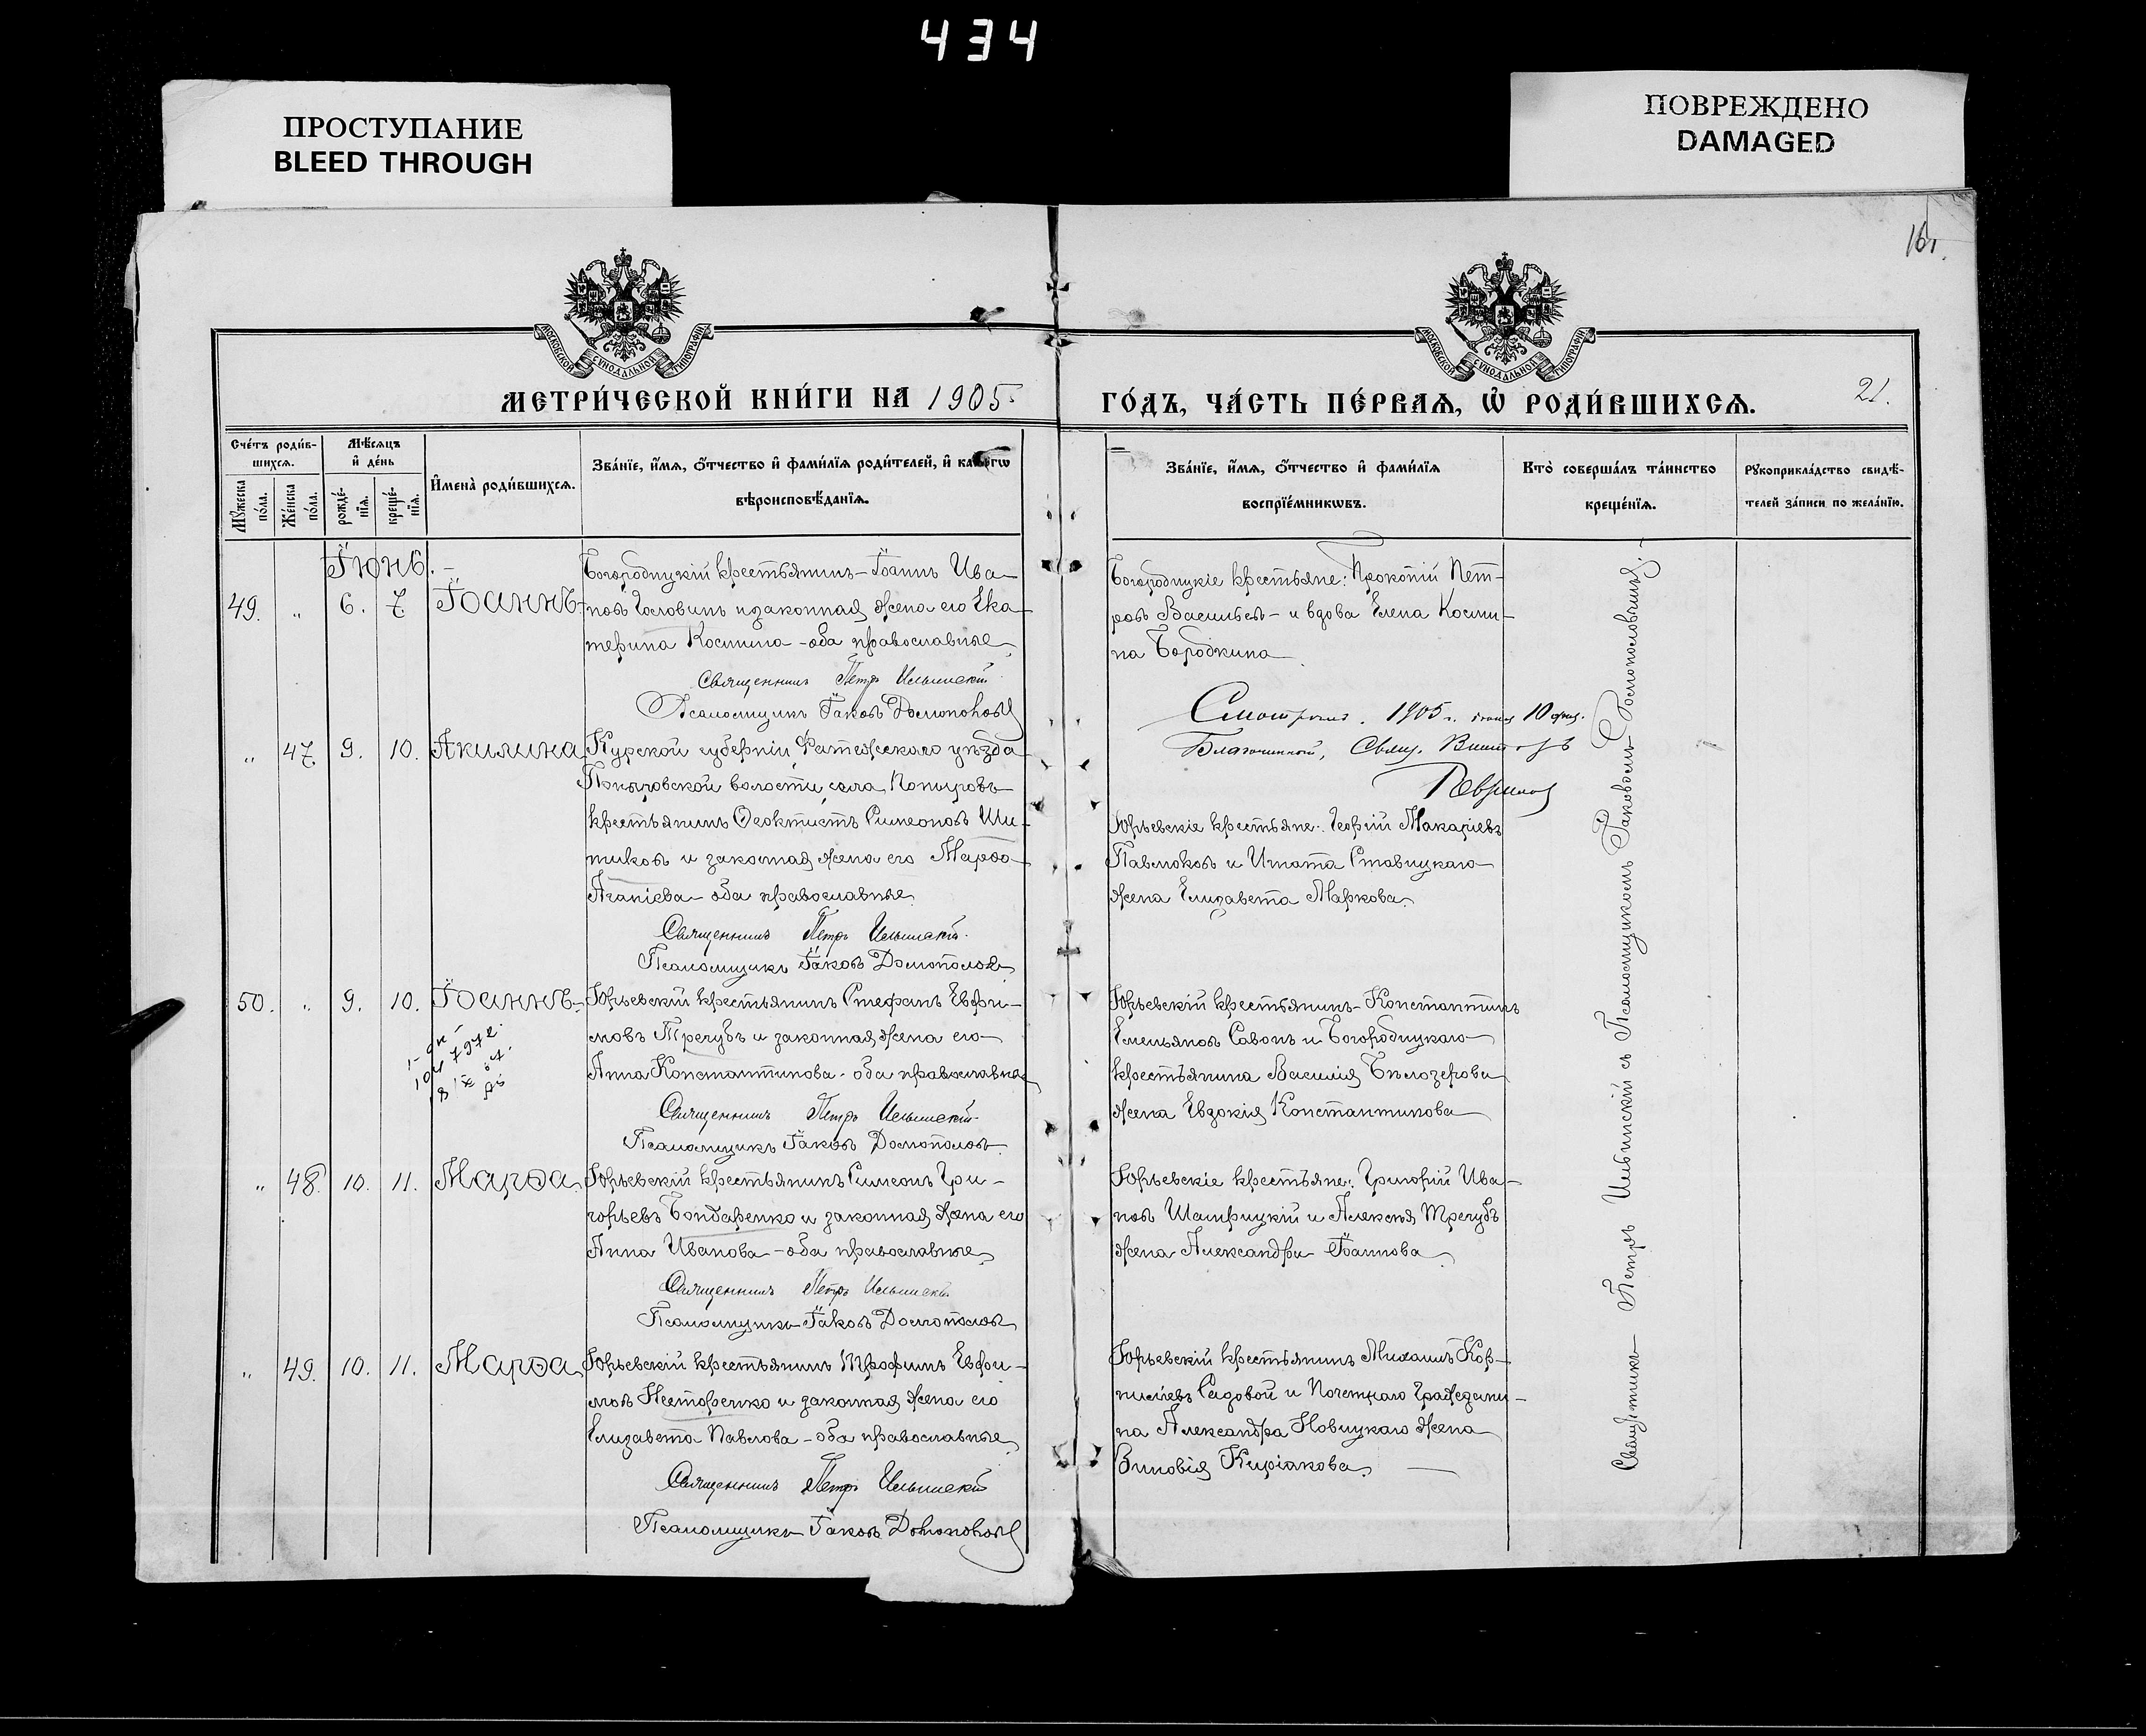 434
ПРОСТУПАНИЕ
BLEED THROUGH
ПОВРЕЖДЕНО
DAMAGED
161.
МОСКОВСКОЙ СѴНОДАЛЬНОЙ ТИПОГРАФІИ
МОСКОВСКОЙ СѴНОДАЛЬНОЙ ТИПОГРАФІИ
МЕТРИ́ЧЕСКОЙ КНИ́ГИ НА 1905
ГО́ДЪ, ЧА́СТЬ ПЕ́РВАЯ, Ѽ РОДИ́ВШИХСЯ.
21.
Сче́тъ роди́в-
шихся.
Мꙋжеска по́ла.
Же́нска по́ла.
Мѣ́сяцъ
и҆ де́нь
рожде́-
нїя.
креще́-
нїя.
И҆мена̀ роди́вшихся.
Зва́нїе, и҆́мя, о҆́тчество и҆ фами́лїя роди́телей, и҆ како́гѡ
вѣроисповѣ́данїя.
Зва́нїе, и҆́мя, о҆́тчество и҆ фами́лїя
воспрїе́мникѡвъ.
Кто̀ соверша́лъ та́инство
креще́нїя.
Рꙋкоприкла́дство свидѣ́-
телей за́писи по жела́нїю.
Іюнь.
49. " 6. 7 Іоаннъ
Богородицкій крестьянинъ Іоаннъ Ива-
новъ Головинъ и законная жена его Ека-
терина Космина - оба православные
Священникъ Петръ Ильинскій
Псаломщикъ Іаковъ
Богородицкіе крестьяне: Прокопій Пет-
ровъ Васильевъ - и вдова Елена Косми-
на Бородкина
Смотрѣлъ. 1905 г. іюня 10 дня.
Благочинный, Свящ.
" 47 9. 10. Акилина
Курской губерніи Фатежскаго уѣзда
Поныровской волости села Поныровъ
крестьянинъ Ѳеоктистъ Симеоновъ Ши-
тиковъ и законная жена его Марѳа
Аѳанасіева - оба православные
Священникъ Петръ Ильинскій
Псаломщикъ Іаковъ
Юрьевскіе крестьяне: Георгій Макаріевъ
Павлюковъ и Игната Ставицкаго
жена Елизавета Маркова
50. " 9. 10. Іоаннъ
Юрьевскій крестьянинъ Стефанъ Евфи-
мовъ Трегубъ и законная жена его
Анна Константинова - оба православные
Священникъ Петръ Ильинскій
Псаломщикъ Іаковъ
Юрьевскій крестьянинъ Константинъ
Емельяновъ Савонъ и Богородицкаго
крестьянина Василія Бѣлозерова
жена Евдокія Константинова
" 48. 10. 11. Марѳа
Юрьевскій крестьянинъ Симеонъ Гри-
горьевъ Бондаренко и законная жена его
Анна Иванова - оба православные
Священникъ Петръ Ильинскій
Псаломщикъ Іаковъ
Юрьевскіе крестьяне: Григорій Ива-
новъ Шатрицкій и Алексѣя Трегубъ
жена Александра Іоаннова
" 49. 10. 11. Марѳа
Юрьевскій крестьянинъ Трофимъ Евфи-
мовъ Нестеренко и законная жена его
Елизавета Павлова - оба православные
Священникъ Петръ Ильинскій
Псаломщикъ Іаковъ
Юрьевскій крестьянинъ Михаилъ Кор-
ниліевъ Садовой и Почетнаго Граждани-
на Александра Новицкаго жена
Зиновія Киріакова
Священникъ Петръ Ильинскій съ Псаломщикомъ Іаковомъ